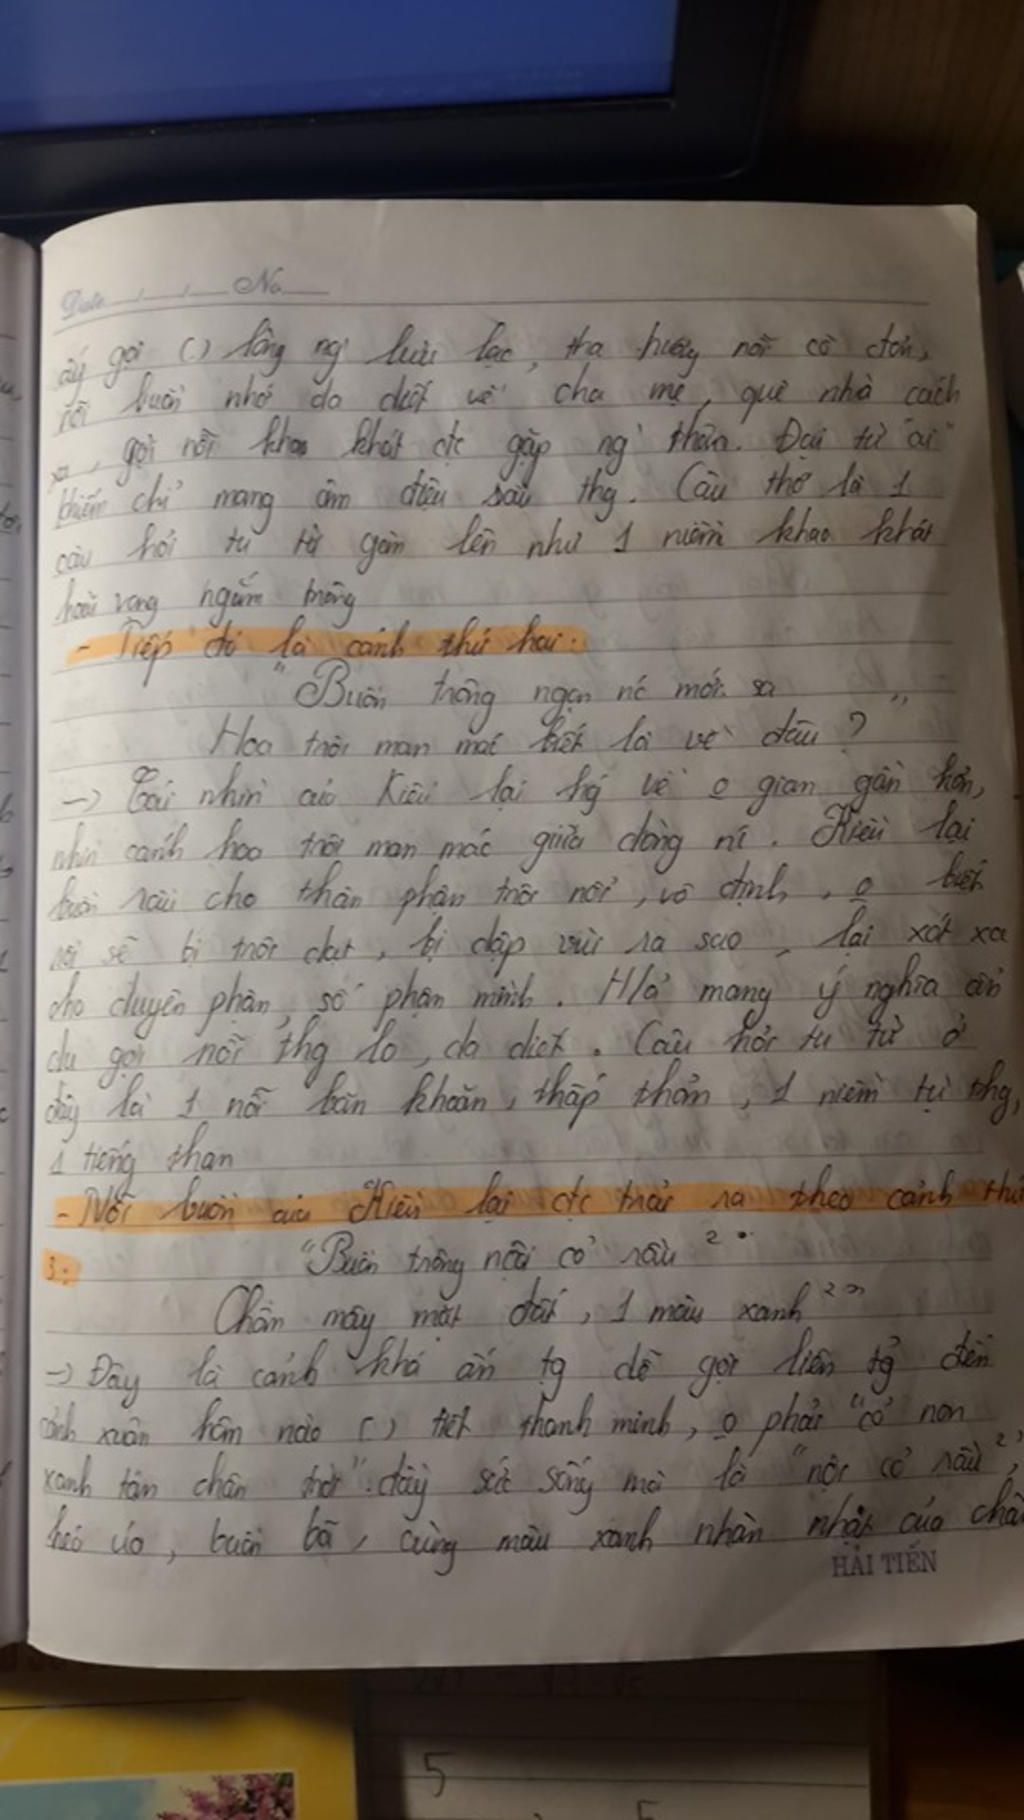 Date / / No
ấy gợi (.) lòng ng' lưu lạc, tha hương nỗi cô đơn,
nỗi buồn nhớ da diết về cha mẹ, quê nhà cách
xa, gợi nỗi khao khát đc gặp ng' thân. Đại từ "ai"
phiếm chỉ mang âm điệu sầu thg. Câu thơ là 1
câu hỏi tu từ gợi lên như 1 niềm khao khát
hoài vọng ngắm trông
- Tiếp đó là cảnh thứ hai:
"Buồn trông ngọn nc mới sa
Hoa trôi man mác biết là về đâu?"
-> Cái nhìn của Kiều lại hg về o gian gần hơn,
nhìn cánh hoa trôi man mác giữa dòng nc. Kiều lại
buồn rầu cho thân phận trôi nổi, vô định, o biết
rồi sẽ bị trôi dạt, bị dập vùi ra sao, lại xót xa
cho duyên phận, số phận mình. H/ả mang ý nghĩa ẩn
dụ gợi nỗi thg lo, da diết. Câu hỏi tu từ ở
đây là 1 nỗi băn khoăn, thấp thỏm, 1 niềm tự thg,
1 tiếng than
- Nỗi buồn của Kiều lại đc trải ra theo cảnh thứ
3:
"Buồn trông nội cỏ rầu ²
Chân mây mặt đất, 1 màu xanh ²"
-> Đây là cảnh khá ấn tg dễ gợi liên tg đến
cảnh xuân hôm nào (.) tiết thanh minh, o phải "cỏ non
xanh tận chân trời" đầy sức sống mà là "nội cỏ rầu ²",
héo úa, buồn bã, cùng màu xanh nhàn nhạt của chân
HẢI TIẾN
5
5